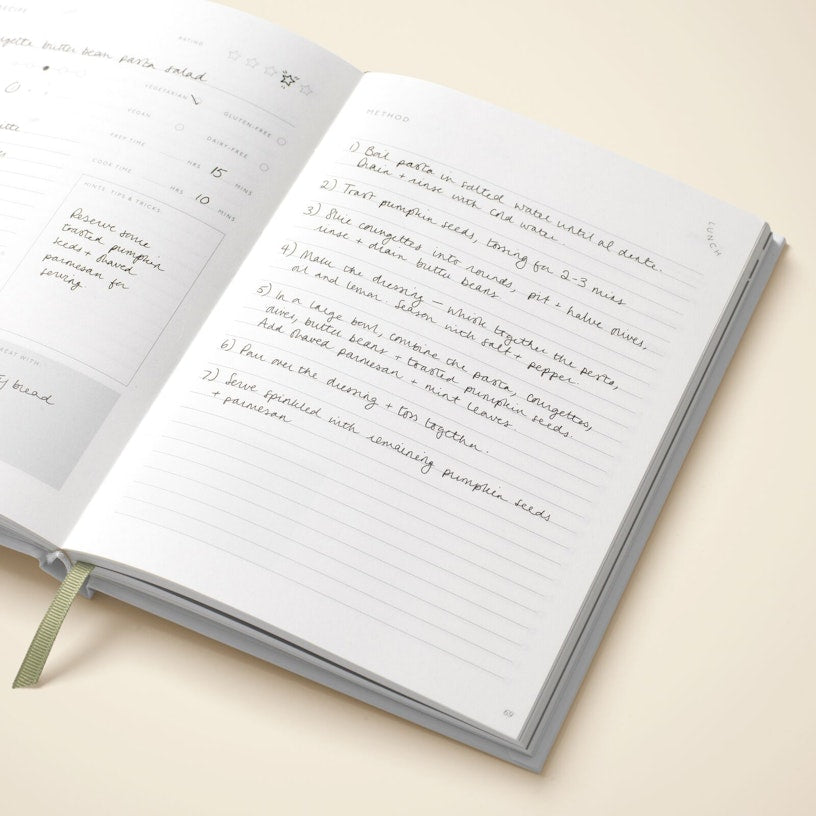 RECIPE
butter bean pasta salad
RATING
VEGETARIAN
GLUTEN-FREE
VEGAN
DAIRY-FREE
PREP TIME HRS 15 MINS
COOK TIME HRS 10 MINS
HINTS, TIPS & TRICKS
Reserve some
toasted pumpkin
seeds + shaved
parmesan for
serving
EAT WITH
bread
METHOD
LUNCH
1) Boil pasta in salted water until al dente.
Drain + rinse with cold water
2) Toast pumpkin seeds, tossing for 2-3 mins
3) Slice courgettes into rounds, pit + halve olives,
rinse + drain butter beans
4) Make the dressing – whisk together the pesto,
oil and lemon. Season with salt + pepper.
5) In a large bowl, combine the pasta, courgettes,
olives, butter beans + toasted pumpkin seeds.
Add shaved parmesan + mint leaves.
6) Pour over the dressing + toss together.
7) Serve sprinkled with remaining pumpkin seeds
+ parmesan
69